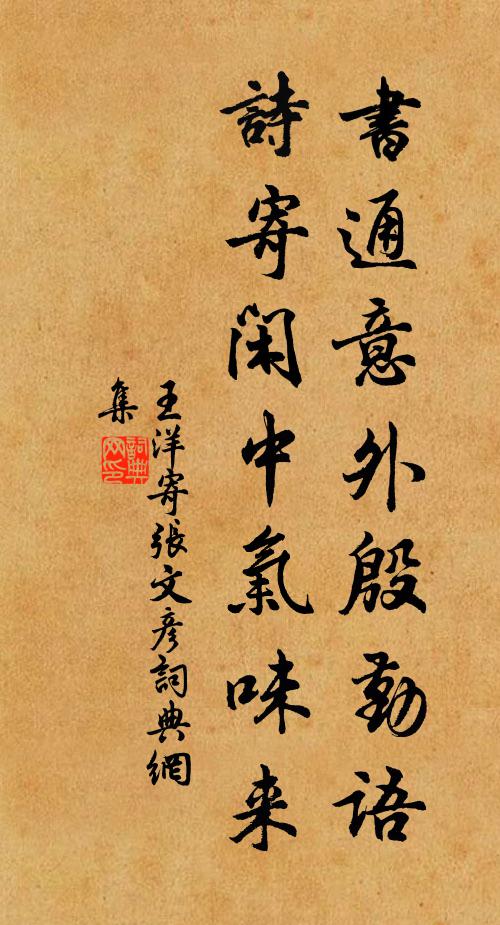 書通意外殷勤語
詩寄閑中氣味来
王洋寄張文彥詞典網
集
詞典網印